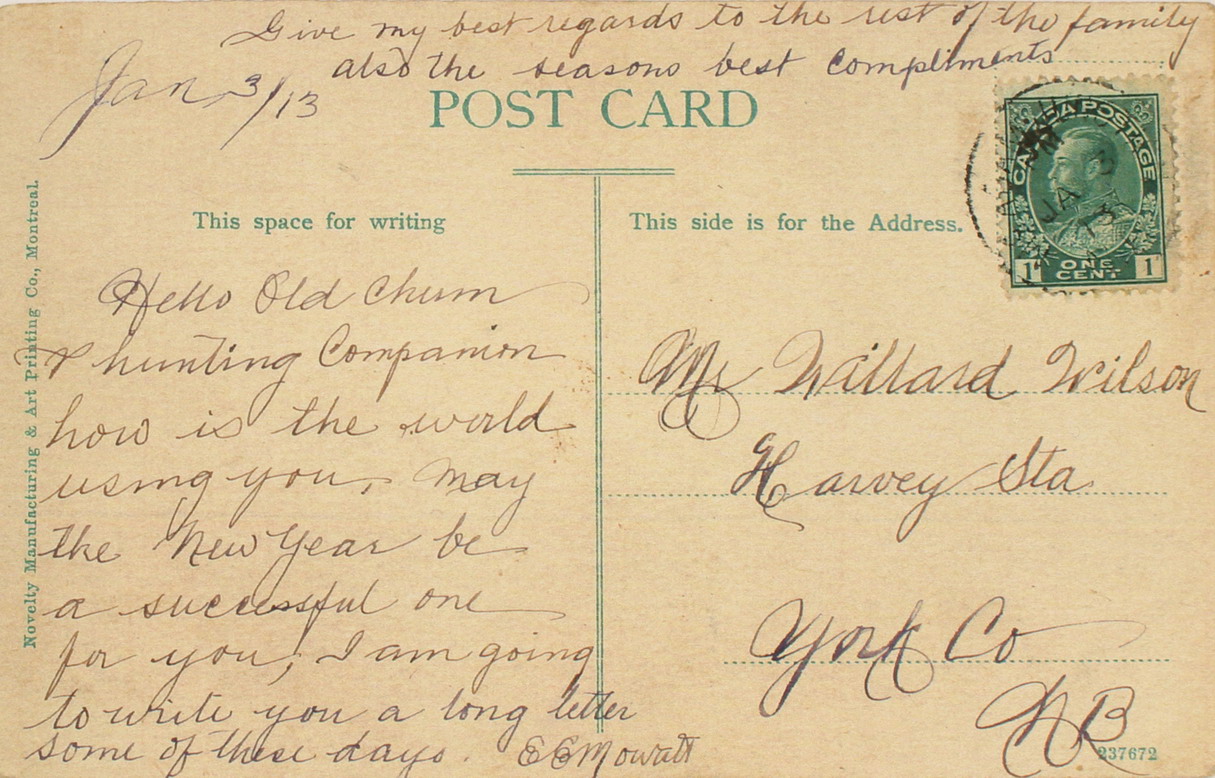 Give my best regards to the rest of the family
also the seasons best compliments
Jan 3/13
POST CARD
This space for writing
This side is for the Address.
CANADA POSTAGE
JA 3
13
1 ONE CENT 1
Hello Old Chum
& hunting Companion
how is the world
using you, May
the New Year be
a successful one
for you, I am going
to write you a long letter
some of these days. E E Mowatt
Mr Willard Wilson
Harvey Sta
York Co
N B
237672
Novelty Manufacturing & Art Printing Co., Montreal.